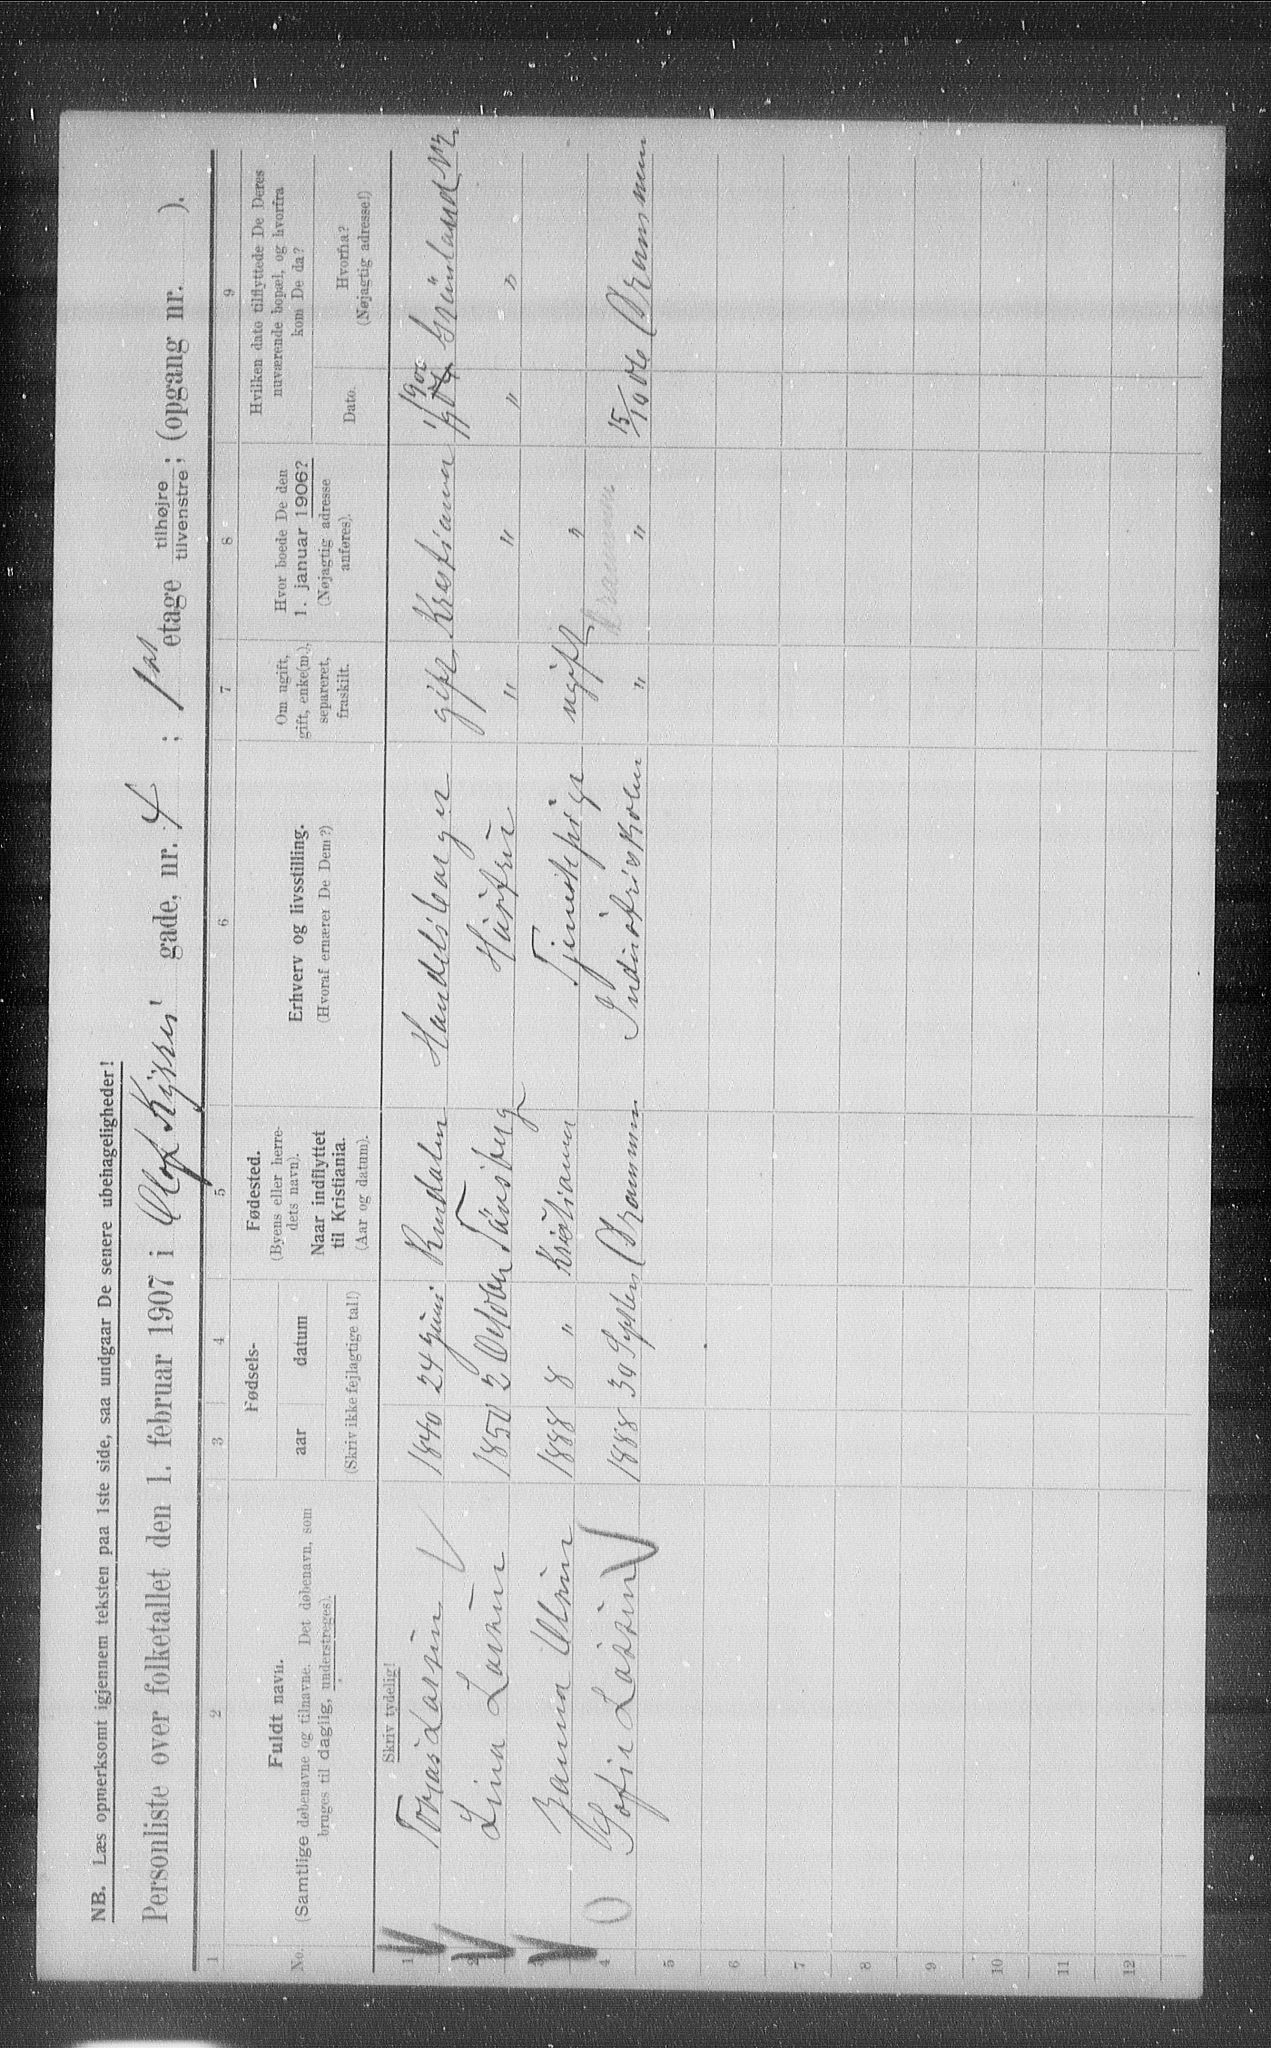 NB. Læs opmerksomt igjennem teksten paa 1ste side, saa undgaar De senere ubehageligheder!
Personliste over folketallet den 1. februar 1907 i Olaf Kyrres' gade, nr. 4 ; 1ste etage tilhøjre tilvenstre; (opgang nr. ).
1 2 3 4 5 6 7 8 9
No.
Fuldt navn.
(Samtlige døbenavne og tilnavne. Det døbenavn, som
bruges til daglig, understreges).
Fødsels-
aar datum
(Skriv ikke fejlagtige tal!)
Fødested.
(Byens eller herre-
dets navn).
Naar indflyttet
til Kristiania.
(Aar og datum).
Erhverv og livsstilling.
(Hvoraf ernærer De Dem?)
Om ugift,
gift, enke(m.),
separeret,
fraskilt.
Hvor boede De den
1. januar 1906?
(Nøjagtig adresse
anføres).
Hvilken dato tilflyttede De Deres
nuværende bopæl, og hvorfra
kom De da?
Dato.
Hvorfra?
(Nøjagtig adresse!)
Skriv tydelig!
1 Tobias Larsen 1840 24 Juni Handelsborger gift Kristiania 1/1 900
2 Lina Larsen 1850 2 Oktober Tønsberg Hustru " " " "
3 Olsen 1888 8 " Kristiania Tjenestepige ugift "
4 Sofie Larsen 1888 30 Septem Drammen Industriskolen " " Drammen 15/10 06 Drammen
5
6
7
8
9
10
11
12